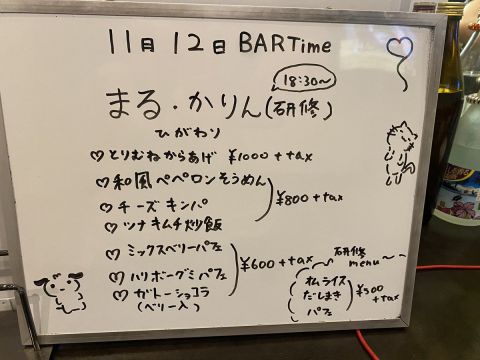 11月12日 BARTime
18:30〜
まる・かりん(研修)
ひがわり
♡とりむねからあげ ¥1000+tax
♡和風ペペロンそうめん
♡チーズキンパ
♡ツナキムチ炒飯
¥800+tax
♡ミックスベリーパフェ
♡ハリボーグミパフェ
♡ガトーショコラ
(ベリー入)
¥600+tax
研修
menu〜
オムライス
だしまき
パフェ
¥500
+tax